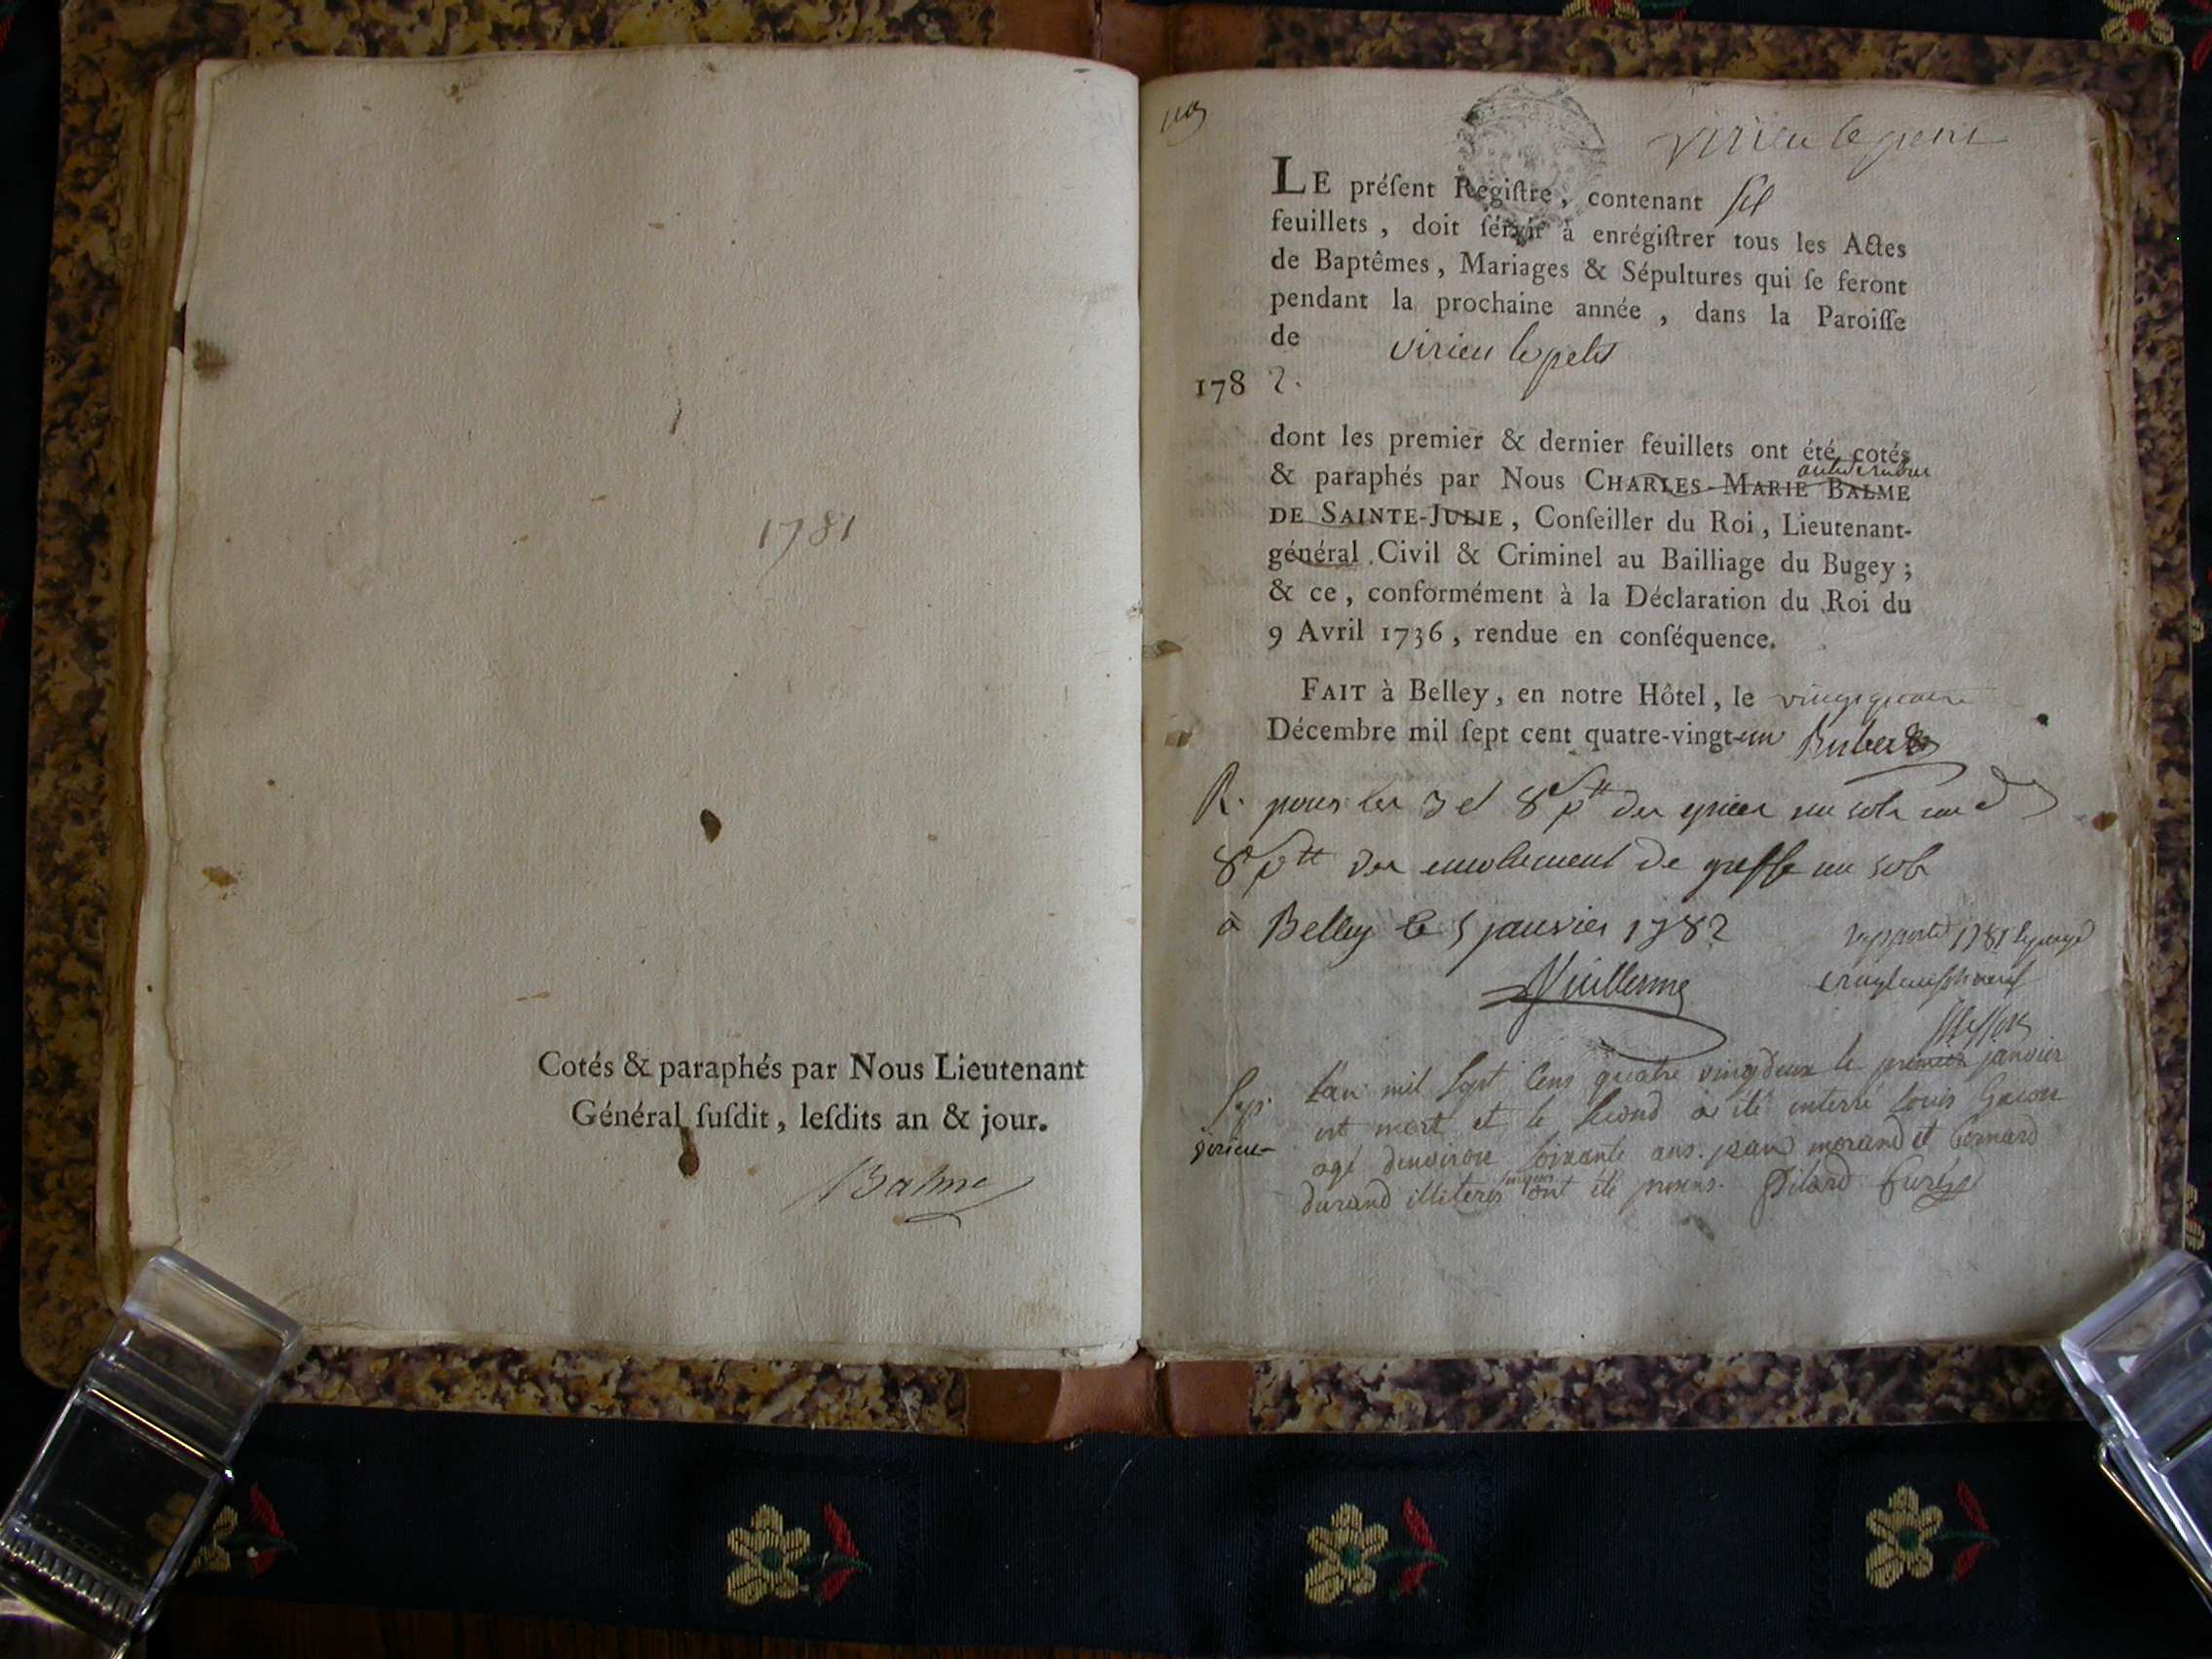 1781
Cotés & paraphés par Nous Lieutenant
Général ſuſdit, leſdits an & jour.
Balme
virieu le petit
LE préſent Regiſtre, contenant
feuillets, doit ſérvir à enrégiſtrer tous les Actes
de Baptêmes, Mariages & Sépultures qui ſe feront
pendant la prochaine année, dans la Paroiſſe
de virieu le petit
178 2.
dont les premier & dernier feuillets ont été cotés
& paraphés par Nous CHARLES-MARIE BALME
DE SAINTE-JULIE, Conſeiller du Roi, Lieutenant-
général Civil & Criminel au Bailliage du Bugey;
& ce, conformément à la Déclaration du Roi du
9 Avril 1736, rendue en conſéquence.
FAIT à Belley, en notre Hôtel, le vingt quatre
Décembre mil ſept cent quatre-vingt-un
R. pour les 3 et 8 des un sols
8 de greffe un sols
à Belley le 5 janvier 1782
1781
Sep. L'an mil sept cens quatre vingt deux le premier janvier
virieu est mort et le second a été enterré Louis
agé d'environ soixante ans. jean morand et bernard
durand illiteres ont été présens. Pitard Curé